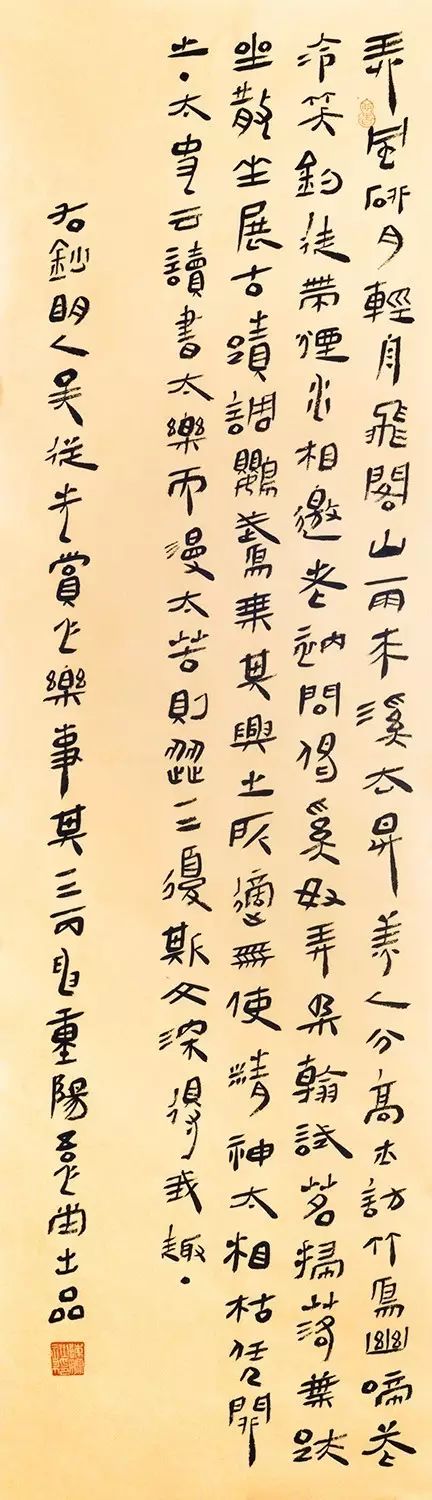 弄風研月輕舟飛閣山雨來溪雲昇美人分高士訪竹鳥幽啼花
冷笑釣徒帶煙水相邀老衲問偈奚奴弄柔翰試茗掃落葉趺
坐散坐展古蹟調鸚鵡乘其興之所適無使精神太相枯馮開
之太史云讀書太樂而漫太苦則澀三復斯文深得我趣
右鈔明人吳從先賞心樂事其三丙申重陽曲士品